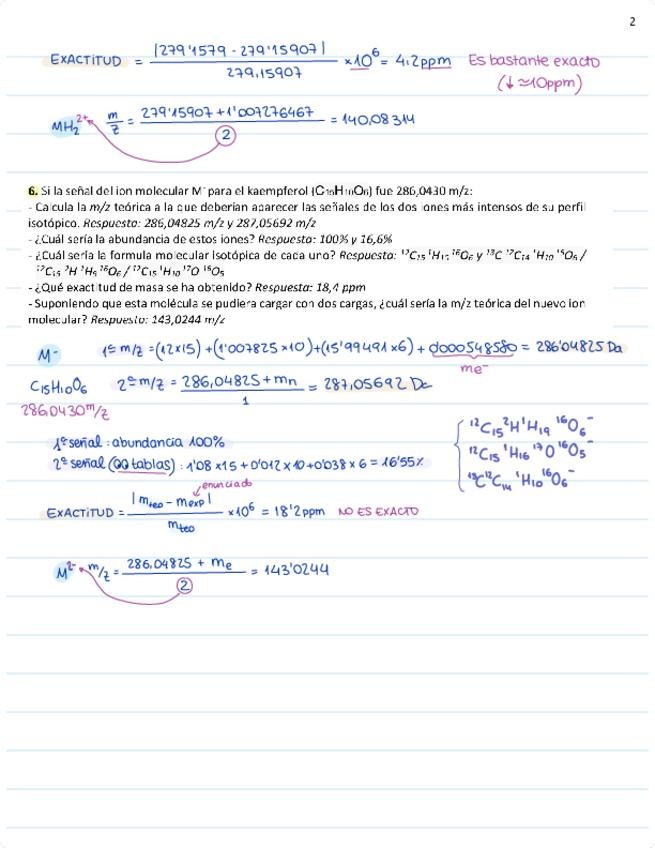 2
EXACTITUD = |279'1579 - 279'15907| / 279,15907 ×10⁶ = 4'2ppm Es bastante exacto
(↓ ≈10ppm)
MH₂²⁺ m/z = 279'15907 + 1'007276467 / 2 = 140,08314
6. Si la señal del ion molecular M⁻ para el kaempferol (C₁₅H₁₀O₆) fue 286,0430 m/z:
- Calcula la m/z teórica a la que deberían aparecer las señales de los dos iones más intensos de su perfil
isotópico. Respuesta: 286,04825 m/z y 287,05692 m/z
- ¿Cuál sería la abundancia de estos iones? Respuesta: 100% y 16,6%
- ¿Cuál sería la formula molecular isotópica de cada uno? Respuesta: ¹²C₁₅ ¹H₁₀ ¹⁶O₆ y ¹³C ¹²C₁₄ ¹H₁₀ ¹⁶O₆ /
¹²C₁₅ ²H ¹H₉ ¹⁶O₆ / ¹²C₁₅ ¹H₁₀ ¹⁷O ¹⁶O₅
- ¿Qué exactitud de masa se ha obtenido? Respuesta: 18,4 ppm
- Suponiendo que esta molécula se pudiera cargar con dos cargas, ¿cuál sería la m/z teórica del nuevo ion
molecular? Respuesta: 143,0244 m/z
M⁻ 1ª m/z = (12×15) + (1'007825×10) + (15'99491×6) + 0'000548580 = 286'04825 Da
me⁻
C₁₅H₁₀O₆ 2ª m/z = 286,04825 + mn / 1 = 287,05692 Da
286,0430 m/z
1ª señal : abundancia 100%
2ª señal (QQ tablas) : 1'08 × 15 + 0'012 × 10 + 0'038 × 6 = 16'55%
¹²C₁₅ ²H ¹H₁₉ ¹⁶O₆⁻
¹²C₁₅ ¹H₁₆ ¹⁷O ¹⁶O₅⁻
¹³C ¹²C₁₄ ¹H₁₀ ¹⁶O₆⁻
enunciado
EXACTITUD = |mteo - mexp| / mteo ×10⁶ = 18'2ppm NO ES EXACTO
M²⁻ m/z = 286,04825 + me / 2 = 143'0244